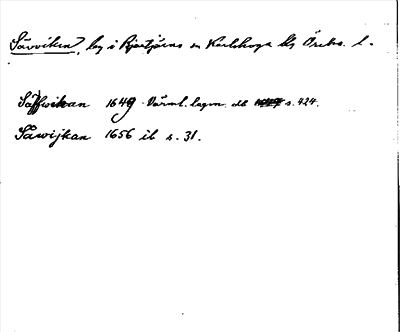 Sävviken, lag i Bjurtjärns sn Karlskoga bg Örebro l.
Säffwikan 1649 Värml. lagm. db s. 424.
Säwijkan 1656 ib s. 31.